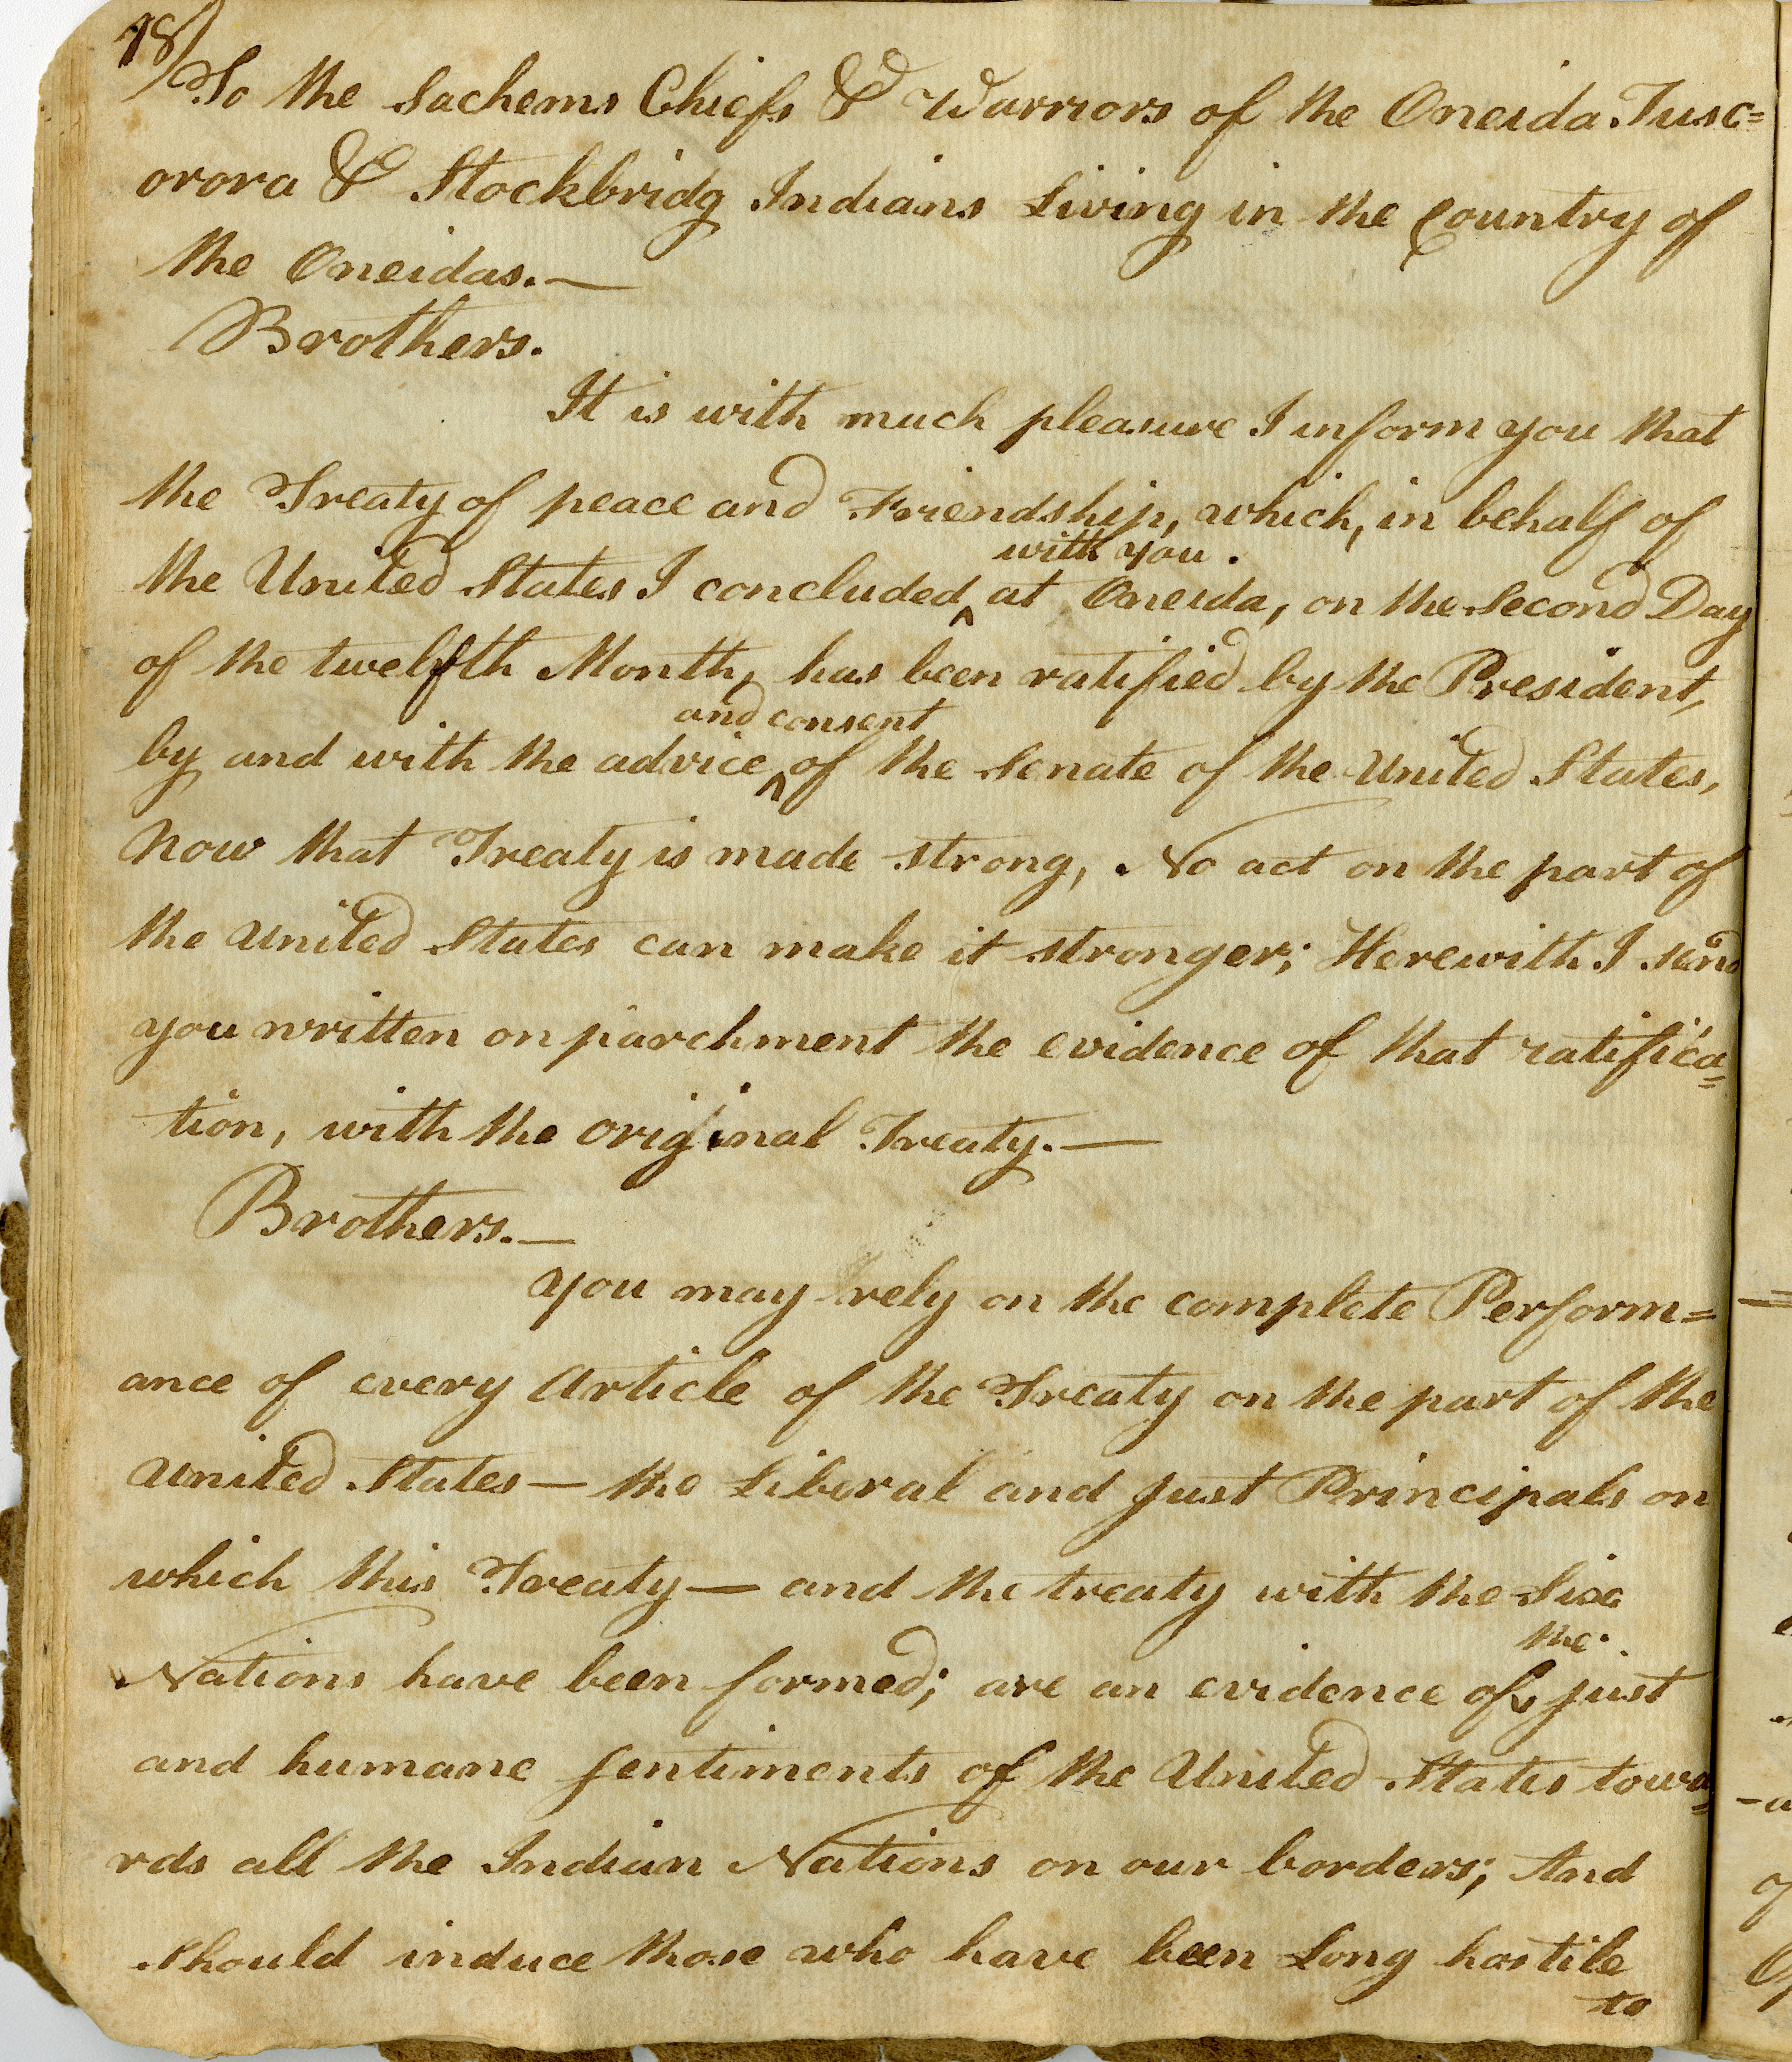 18)
To the Sachems Chiefs & Warriors of the Oneida Tusc=
orora & Stockbridg Indians Living in the Country of
the Oneidas.—
Brothers.
It is with much pleasure I inform you that
the Treaty of peace and Friendship, which, in behalf of
with you.
the United States I concluded ^ at Oneida, on the Second Day
of the twelfth Month, has been ratified by the President,
and consent
by and with the advice ^ of the Senate of the United States,
Now that Treaty is made strong, No act on the part of
the United States can make it stronger; Herewith I send
you written on parchment the evidence of that ratifica=
tion, with the original Treaty.—
Brothers.—
you may rely on the complete Perform=
ance of every Article of the Treaty on the part of the
United States— the Liberal and just Principals on
which this Treaty— and the treaty with the Six
the
Nations have been formed; are an evidence of ^ just
and humane sentiments of the United States towa=
rds all the Indian Nations on our borders; And
should induce those who have been Long hostile
to